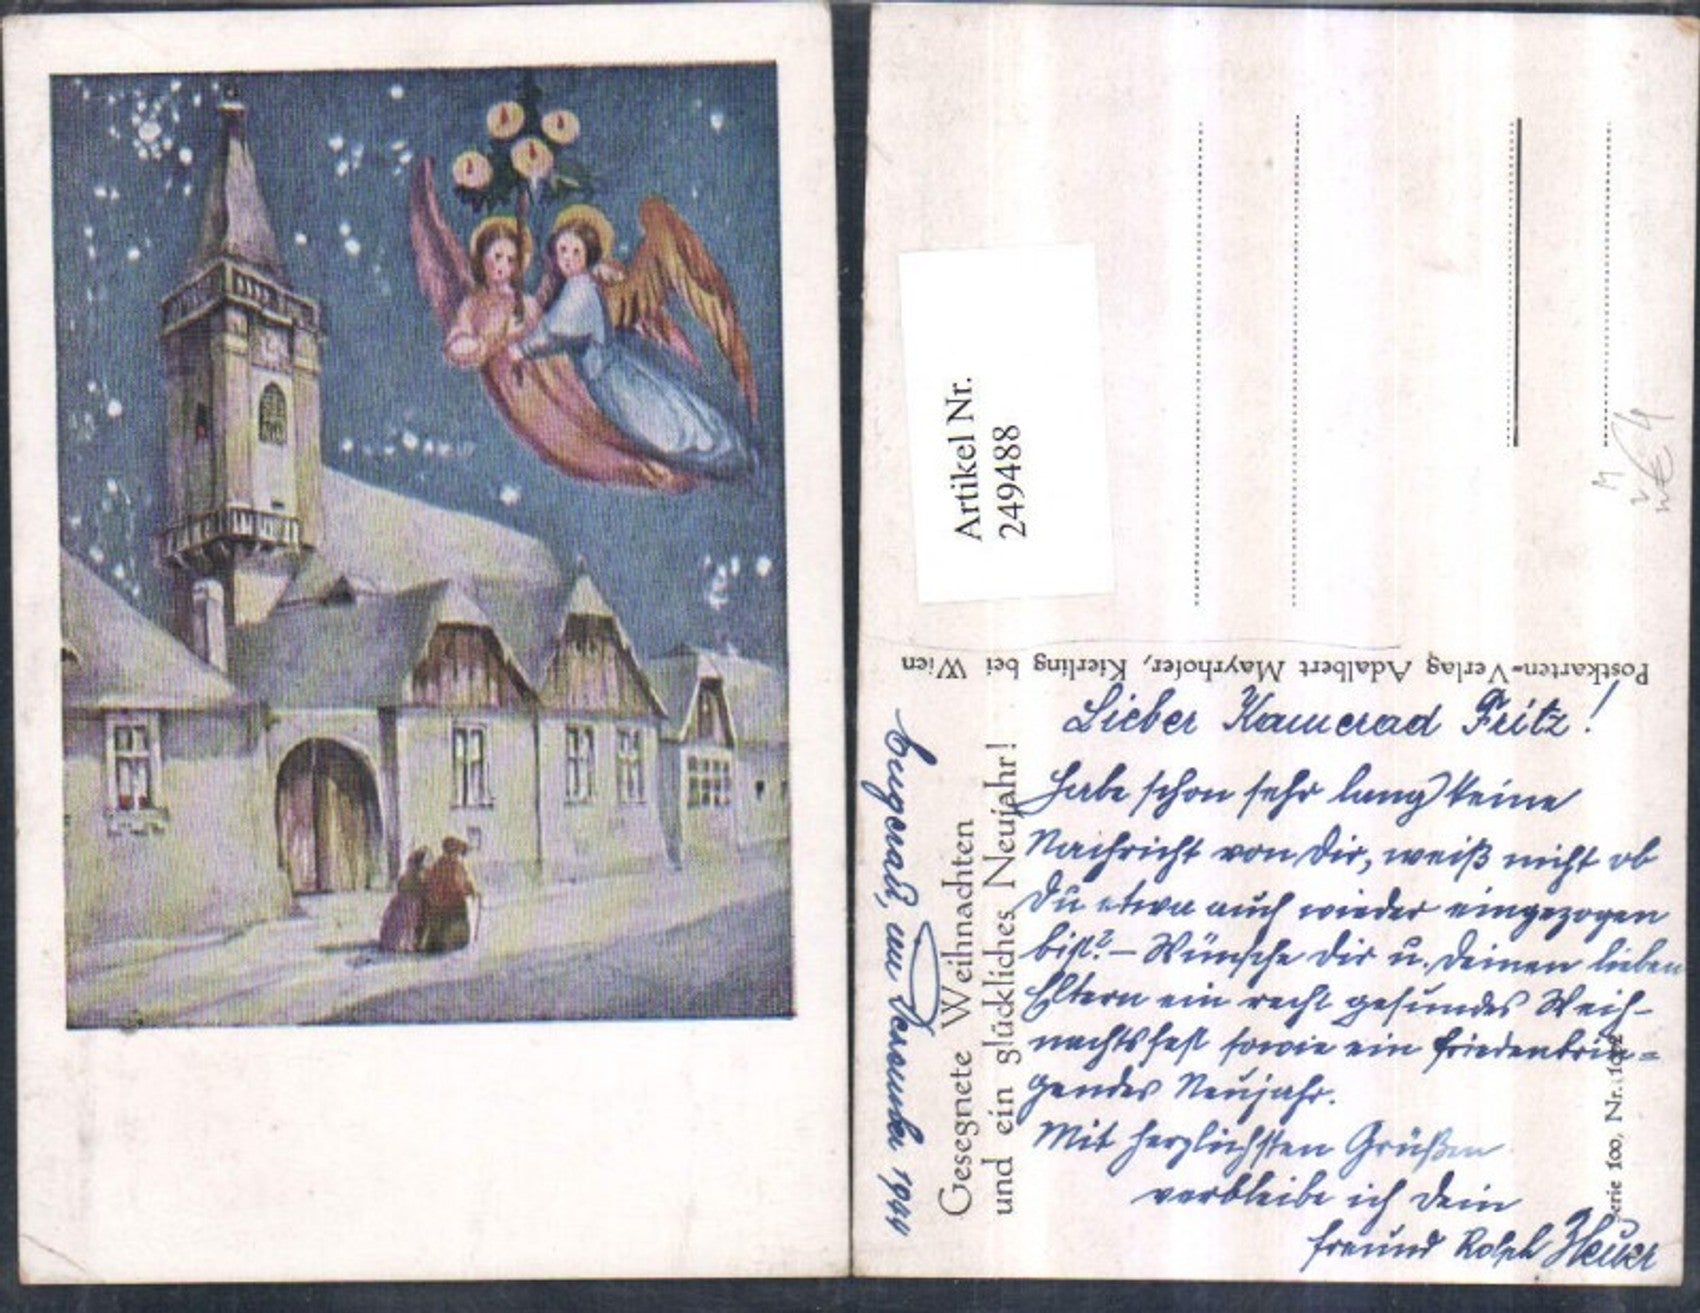 Artikel Nr.
249488
Postkarten-Verlag Adalbert Mayrhofer, Kierling bei Wien
Gesegnete Weihnachten
und ein glückliches Neujahr!
im Dezember 1944
Lieber Kamerad Fritz!
Habe schon sehr lang keine
Nachricht von Dir, weiß nicht ob
Du etwa auch wieder eingezogen
bist? – Wünsche Dir u. Deinen lieben
Eltern ein recht gesundes Weih-
nachtsfest sowie ein friedenbrin-
gendes Neujahr.
Mit herzlichsten Grüßen
verbleibe ich Dein
Freund Rolph
Serie 100, Nr.